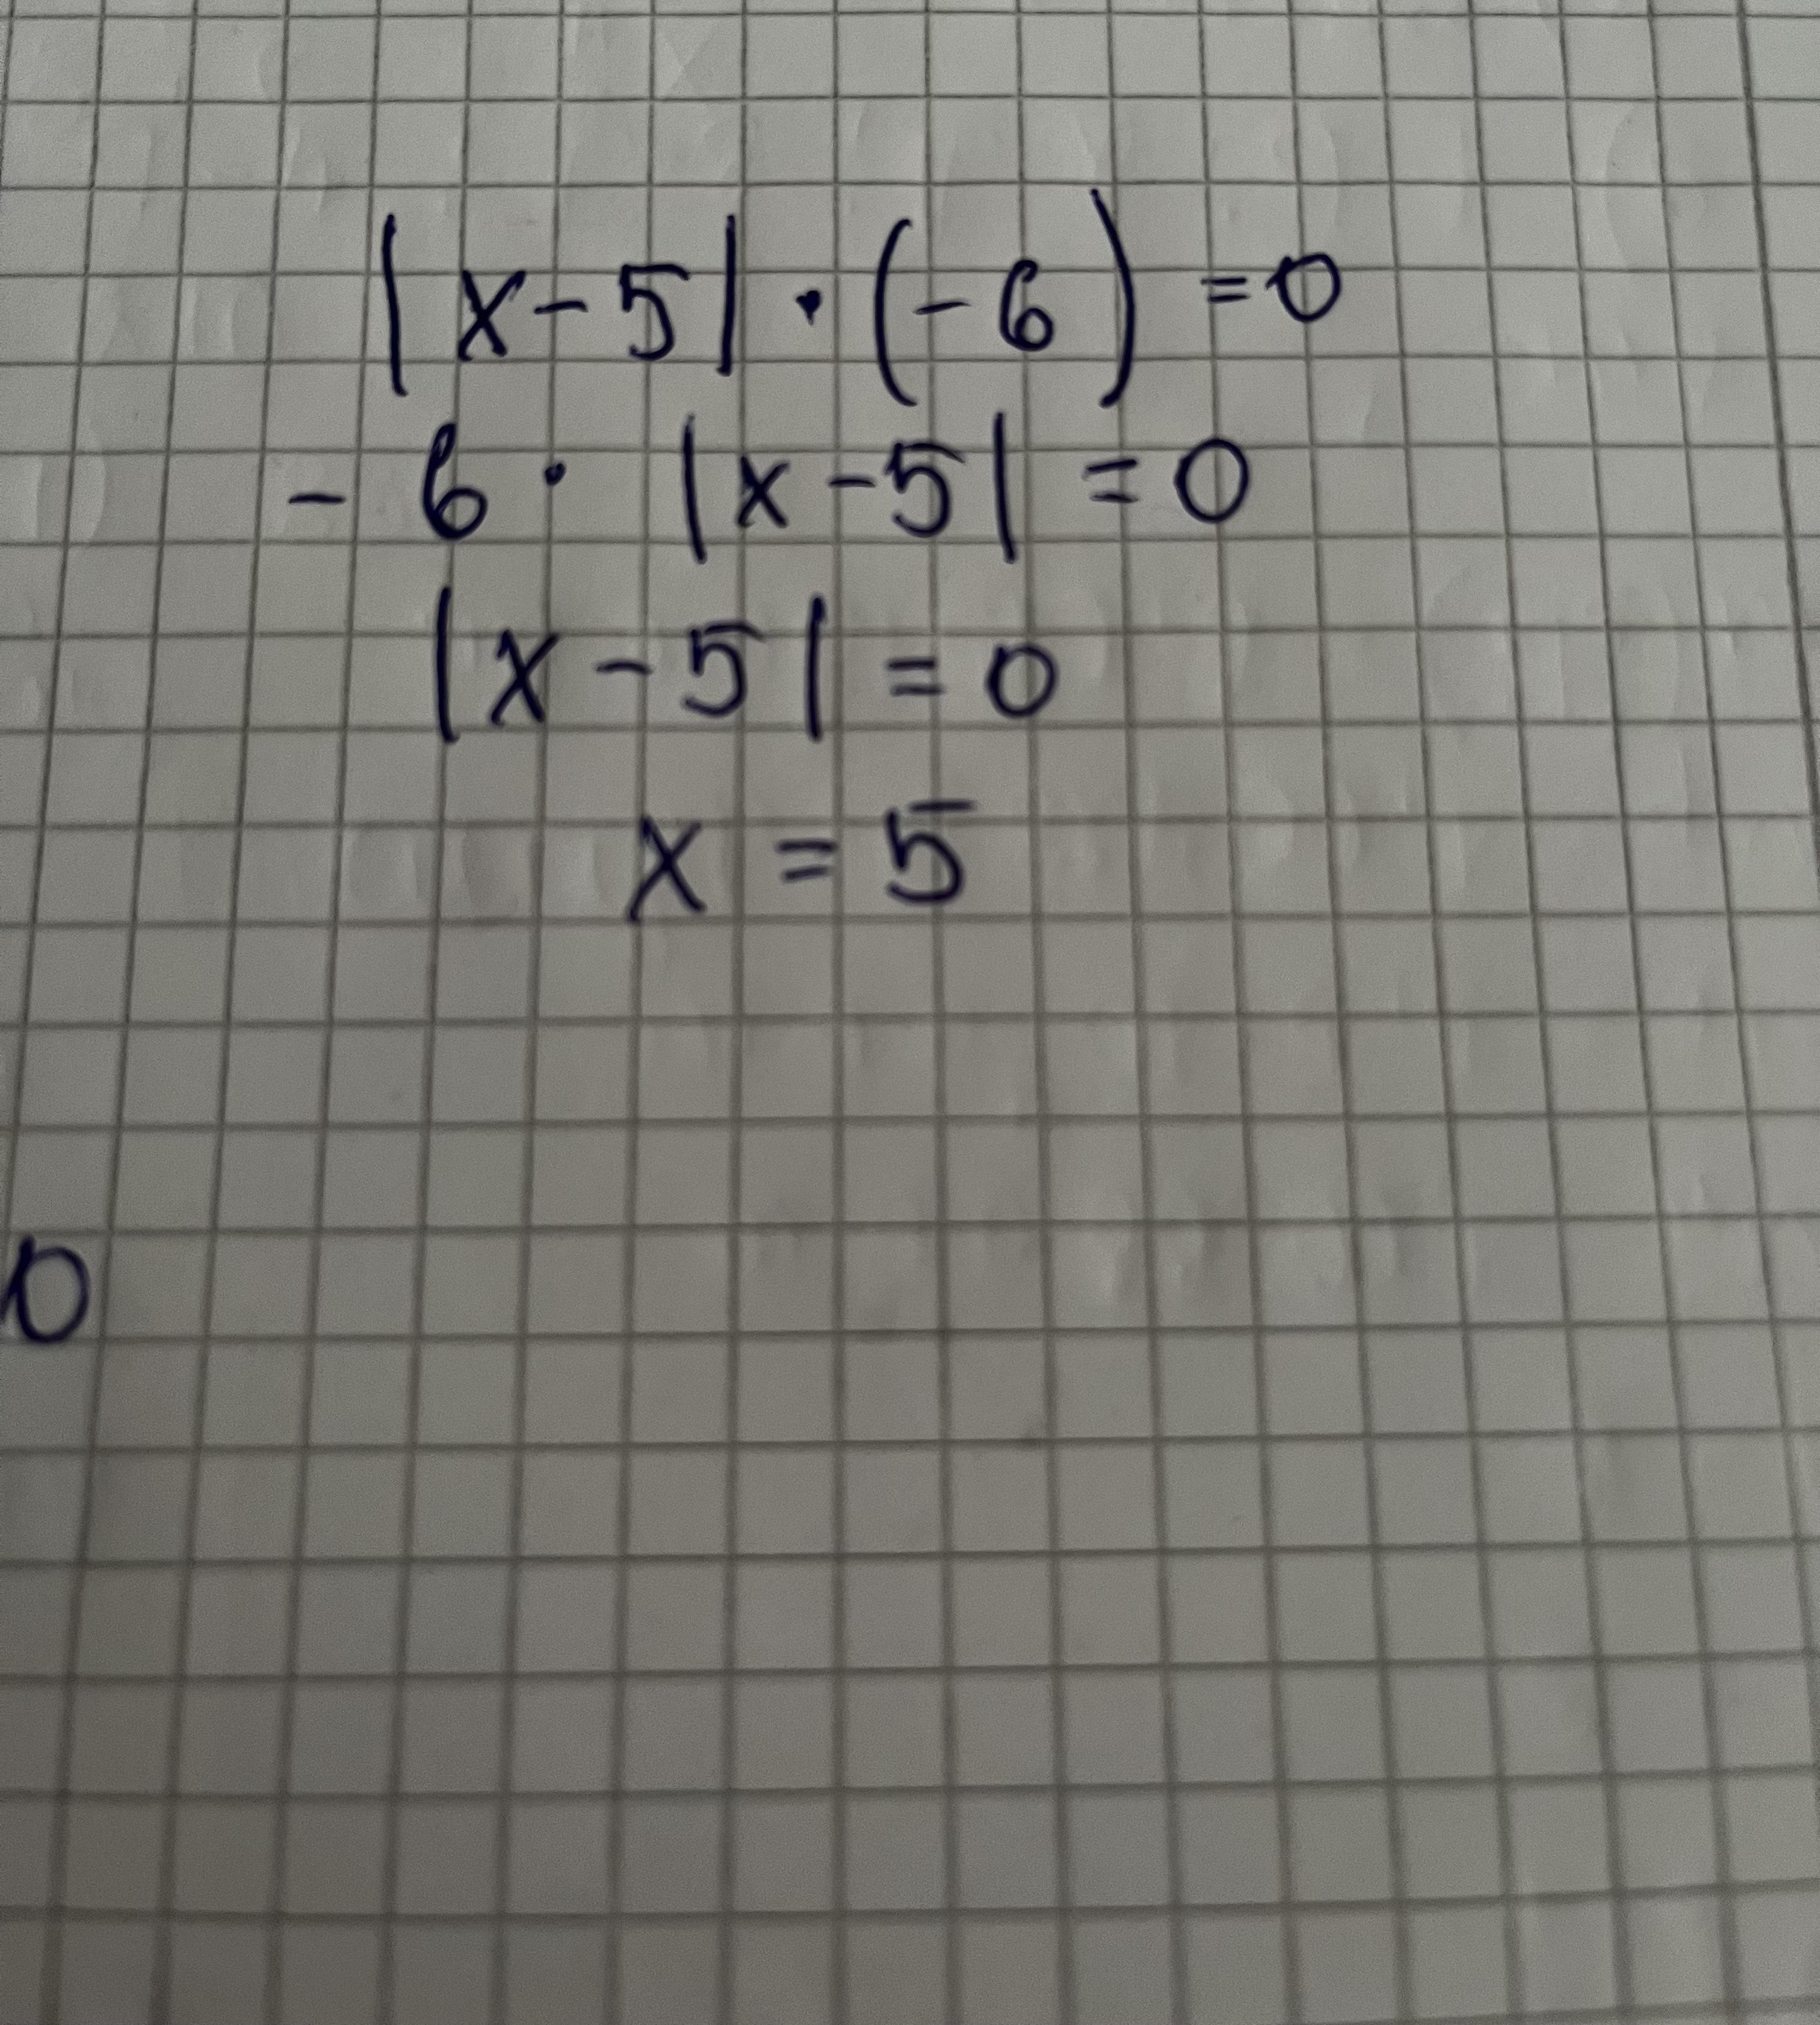 |x-5|·(-6)=0
-6·|x-5|=0
|x-5|=0
x=5
0